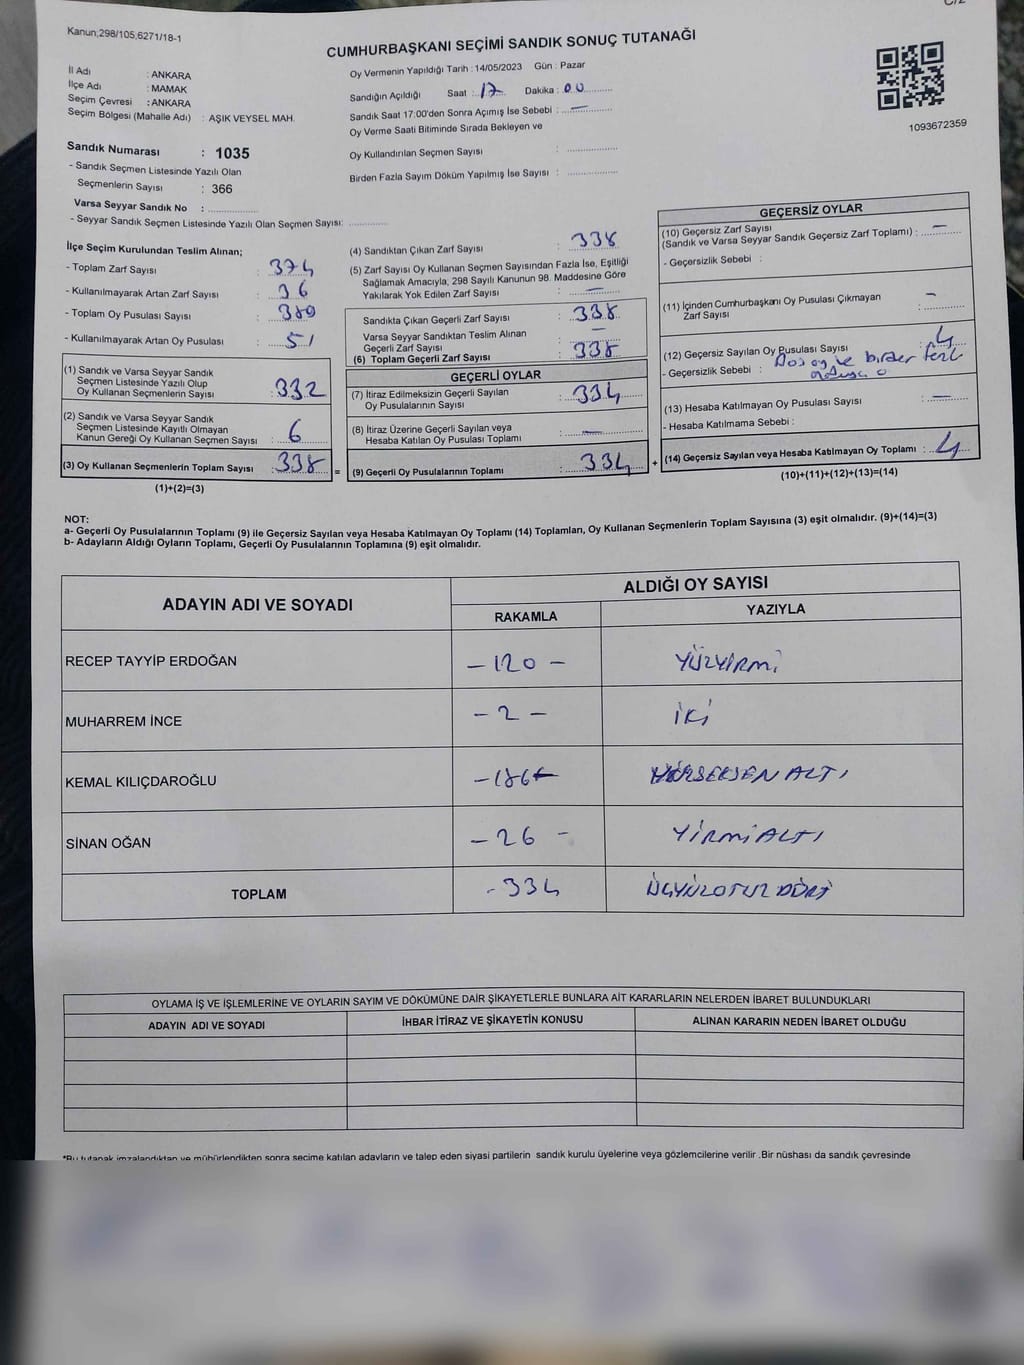 Kanun;298/105;6271/18-1
CUMHURBAŞKANI SEÇİMİ SANDIK SONUÇ TUTANAĞI
İl Adı : ANKARA
İlçe Adı : MAMAK
Seçim Çevresi : ANKARA
Seçim Bölgesi (Mahalle Adı) : AŞIK VEYSEL MAH.
Sandık Numarası : 1035
- Sandık Seçmen Listesinde Yazılı Olan
Seçmenlerin Sayısı : 366
Varsa Seyyar Sandık No :
- Seyyar Sandık Seçmen Listesinde Yazılı Olan Seçmen Sayısı:
Oy Vermenin Yapıldığı Tarih : 14/05/2023 Gün : Pazar
Sandığın Açıldığı Saat : 17 Dakika : 00
Sandık Saat 17:00'den Sonra Açımış İse Sebebi : —
Oy Verme Saati Bitiminde Sırada Bekleyen ve
Oy Kullandırılan Seçmen Sayısı :
Birden Fazla Sayım Döküm Yapılmış İse Sayısı :
1093672359
İlçe Seçim Kurulundan Teslim Alınan;
- Toplam Zarf Sayısı : 374
- Kullanılmayarak Artan Zarf Sayısı : 36
- Toplam Oy Pusulası Sayısı :
- Kullanılmayarak Artan Oy Pusulası : 51
(1) Sandık ve Varsa Seyyar Sandık
Seçmen Listesinde Yazılı Olup
Oy Kullanan Seçmenlerin Sayısı : 332
(2) Sandık ve Varsa Seyyar Sandık
Seçmen Listesinde Kayıtlı Olmayan
Kanun Gereği Oy Kullanan Seçmen Sayısı : 6
(3) Oy Kullanan Seçmenlerin Toplam Sayısı : 338 =
(1)+(2)=(3)
(4) Sandıktan Çıkan Zarf Sayısı : 338
(5) Zarf Sayısı Oy Kullanan Seçmen Sayısından Fazla İse, Eşitliği
Sağlamak Amacıyla, 298 Sayılı Kanunun 98. Maddesine Göre
Yakılarak Yok Edilen Zarf Sayısı : —
Sandıkta Çıkan Geçerli Zarf Sayısı : 338
Varsa Seyyar Sandıktan Teslim Alınan
Geçerli Zarf Sayısı : —
(6) Toplam Geçerli Zarf Sayısı : 338
GEÇERLİ OYLAR
(7) İtiraz Edilmeksizin Geçerli Sayılan
Oy Pusulalarının Sayısı : 334
(8) İtiraz Üzerine Geçerli Sayılan veya
Hesaba Katılan Oy Pusulası Toplamı : —
(9) Geçerli Oy Pusulalarının Toplamı : 334 +
GEÇERSİZ OYLAR
(10) Geçersiz Zarf Sayısı
(Sandık ve Varsa Seyyar Sandık Geçersiz Zarf Toplamı) : —
- Geçersizlik Sebebi :
(11) İçinden Cumhurbaşkanı Oy Pusulası Çıkmayan
Zarf Sayısı : —
(12) Geçersiz Sayılan Oy Pusulası Sayısı : 4
- Geçersizlik Sebebi : Boş oy ve birden fazla
(13) Hesaba Katılmayan Oy Pusulası Sayısı : —
- Hesaba Katılmama Sebebi :
(14) Geçersiz Sayılan veya Hesaba Katılmayan Oy Toplamı : 4
(10)+(11)+(12)+(13)=(14)
NOT:
a- Geçerli Oy Pusulalarının Toplamı (9) ile Geçersiz Sayılan veya Hesaba Katılmayan Oy Toplamı (14) Toplamları, Oy Kullanan Seçmenlerin Toplam Sayısına (3) eşit olmalıdır. (9)+(14)=(3)
b- Adayların Aldığı Oyların Toplamı, Geçerli Oy Pusulalarının Toplamına (9) eşit olmalıdır.
ADAYIN ADI VE SOYADI ALDIĞI OY SAYISI
RAKAMLA YAZIYLA
RECEP TAYYİP ERDOĞAN - 120 - YÜZYİRMİ
MUHARREM İNCE - 2 - İKİ
KEMAL KILIÇDAROĞLU - 186 - YÜZSEKSENALTI
SİNAN OĞAN - 26 - YİRMİALTI
TOPLAM - 334 ÜÇYÜZOTUZDÖRT
OYLAMA İŞ VE İŞLEMLERİNE VE OYLARIN SAYIM VE DÖKÜMÜNE DAİR ŞİKAYETLERLE BUNLARA AİT KARARLARIN NELERDEN İBARET BULUNDUKLARI
ADAYIN ADI VE SOYADI İHBAR İTİRAZ VE ŞİKAYETİN KONUSU ALINAN KARARIN NEDEN İBARET OLDUĞU
*Bu tutanak imzalandıktan ve mühürlendikten sonra seçime katılan adayların ve talep eden siyasi partilerin sandık kurulu üyelerine veya gözlemcilerine verilir .Bir nüshası da sandık çevresinde